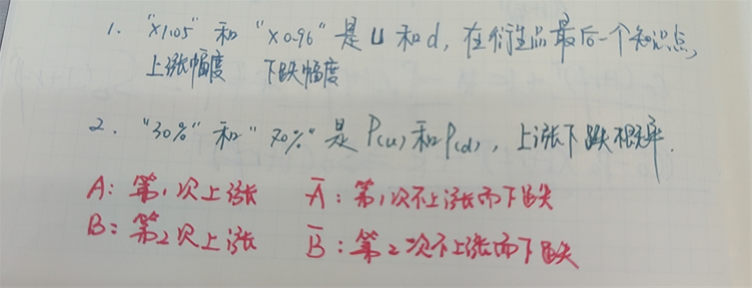 1. "×1.05" 和 "×0.96" 是 u 和 d, 在衍生品最后一个知识点,
上涨幅度 下跌幅度
2. "30%" 和 "70%" 是 P(u) 和 P(d), 上涨下跌概率.
A: 第1次上涨 A̅: 第1次不上涨而下跌
B: 第2次上涨 B̅: 第2次不上涨而下跌